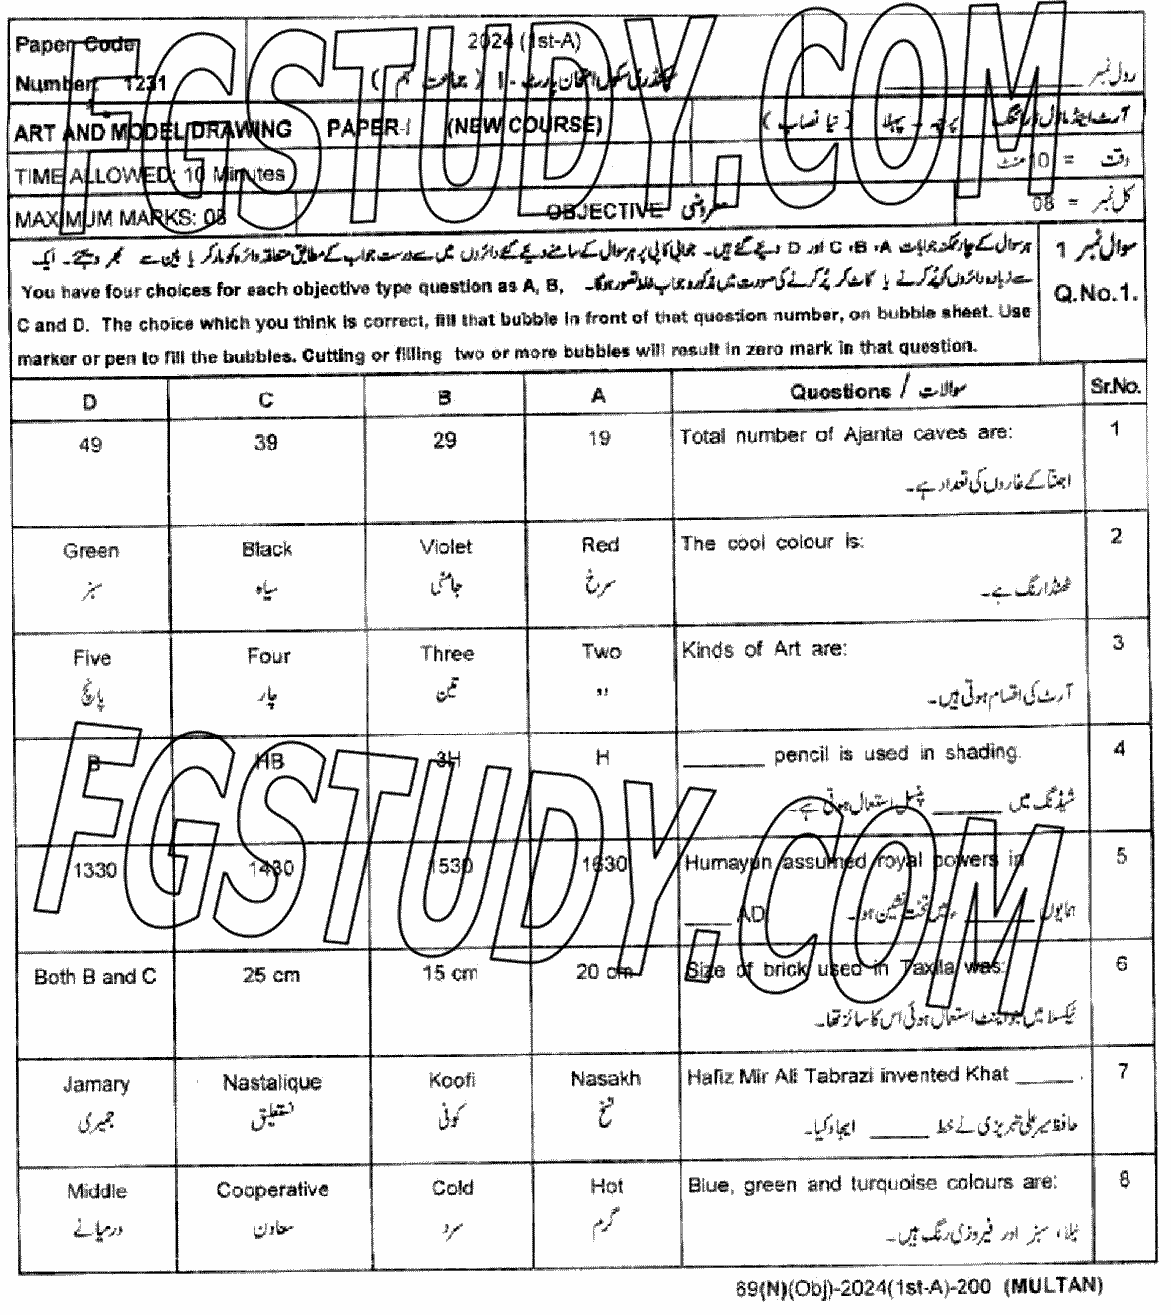 Paper Code 2024 (1st-A) رول نمبر ________
Number: 1231 سیکنڈری سکول امتحان پارٹ - I ( جماعت نہم )
ART AND MODEL DRAWING PAPER-I (NEW COURSE) ( نیا نصاب ) پرچہ - پہلا آرٹ اینڈ ماڈل ڈرائنگ
TIME ALLOWED: 10 Minutes وقت = 10 منٹ
MAXIMUM MARKS: 08 OBJECTIVE معروضی کل نمبر = 08
سوال نمبر 1 ہر سوال کے چار ممکنہ جوابات A، B، C اور D دیئے گئے ہیں۔ جوابی کاپی پر ہر سوال کے سامنے دیئے گئے دائروں میں سے درست جواب کے مطابق متعلقہ دائرہ کو مارکر یا پین سے بھر دیجئے۔ ایک
سے زیادہ دائروں کو پُر کرنے یا کاٹ کر پُر کرنے کی صورت میں مذکورہ جواب غلط تصور ہوگا۔
Q.No.1. You have four choices for each objective type question as A, B,
C and D. The choice which you think is correct, fill that bubble in front of that question number, on bubble sheet. Use
marker or pen to fill the bubbles. Cutting or filling two or more bubbles will result in zero mark in that question.
D C B A Questions / سوالات Sr.No.
49 39 29 19 Total number of Ajanta caves are: 1
اجنتا کے غاروں کی تعداد ہے۔
Green Black Violet Red The cool colour is: 2
سبز سیاہ جامنی سرخ ٹھنڈا رنگ ہے۔
Five Four Three Two Kinds of Art are: 3
پانچ چار تین دو آرٹ کی اقسام ہوتی ہیں۔
B HB 3H H ______ pencil is used in shading. 4
شیڈنگ میں ______ پنسل استعمال ہوتی ہے۔
1330 1430 1530 1630 Humayun assumed royal powers in 5
____ AD ہمایوں ______ ء میں تخت نشین ہوا۔
Both B and C 25 cm 15 cm 20 cm Size of brick used in Taxila was: 6
ٹیکسلا میں جو اینٹ استعمال ہوئی اس کا سائز تھا۔
Jamary Nastalique Koofi Nasakh Hafiz Mir Ali Tabrazi invented Khat _____. 7
جمیری نستعلیق کوفی نسخ حافظ میر علی تبریزی نے خط _____ ایجاد کیا۔
Middle Cooperative Cold Hot Blue, green and turquoise colours are: 8
درمیانے معاون سرد گرم نیلا، سبز اور فیروزی رنگ ہیں۔
69(N)(Obj)-2024(1st-A)-200 (MULTAN)
FGSTUDY.COM
FGSTUDY.COM